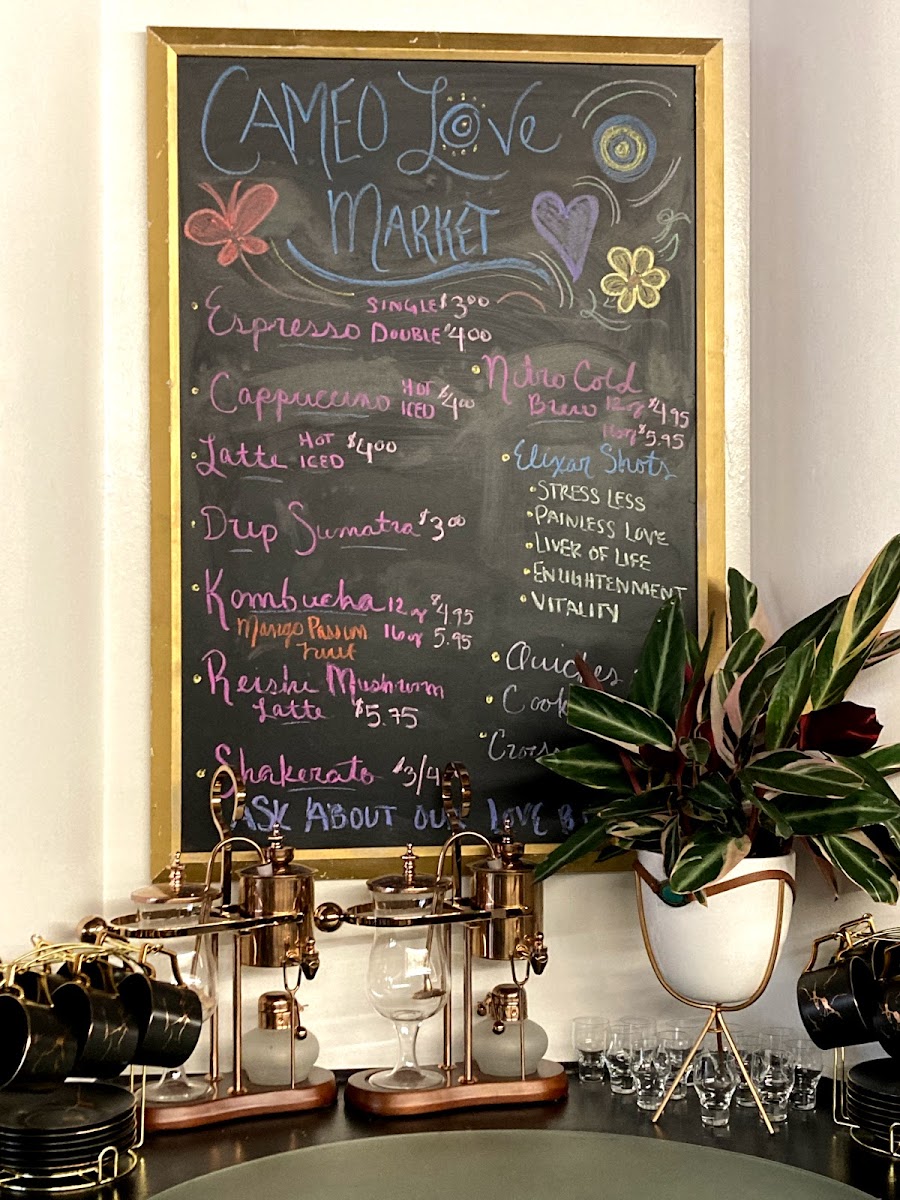 CAMEO LOVE
MARKET
Espresso SINGLE $3.00
DOUBLE $4.00
Cappuccino HOT ICED $4.00
Latte HOT ICED $4.00
Drip Sumatra $3.00
Kombucha 12oz $4.95
Mango Passion 16oz 5.95
Fruit
Reishi Mushroom
Latte $5.75
Shakerato $3/4
Nitro Cold
Brew 12oz $4.95
16oz $5.95
Elixar Shots
STRESS LESS
PAINLESS LOVE
LIVER OF LIFE
ENLIGHTENMENT
VITALITY
Quiches
ASK ABOUT OUR LOVE